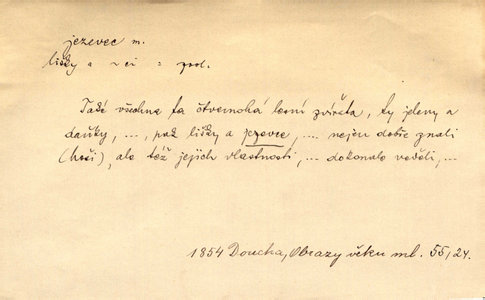 jezevec m.
lišky a ~ci = pod.
Také všechna ta čtvernohá lesní zvířata, ty jeleny a
daňky, ..., pak lišky a jezevce, ... nejen dobře znali
(hoši), ale též jejich vlastnosti, ... dokonale věděli, ...
1854 Doucha, Obrazy věku ml. 55, 24.